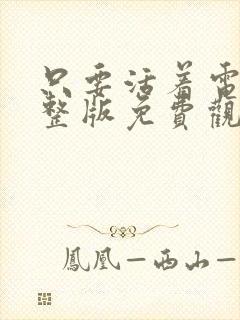 只要活着電
整版免費觀
鳳凰—西山—